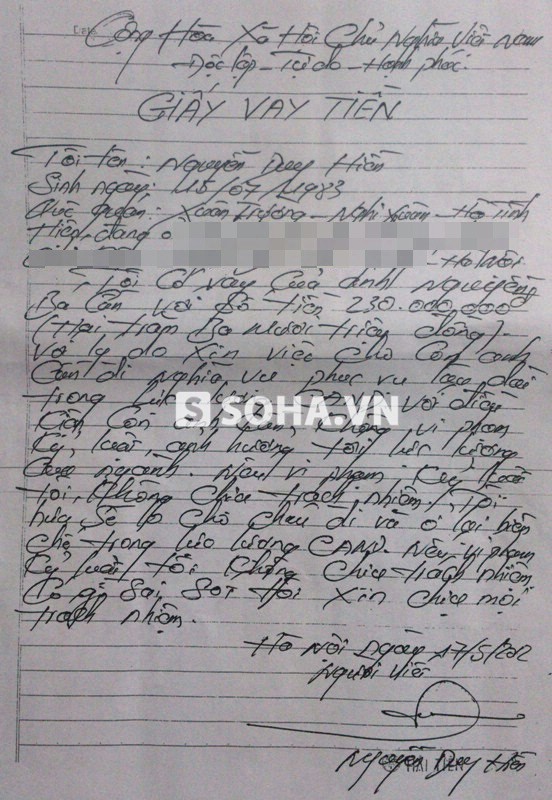 Cộng Hòa Xã Hội Chủ Nghĩa Việt Nam
Độc lập - Tự do - Hạnh phúc.
GIẤY VAY TIỀN
Tôi tên: Nguyễn Duy Hiền
Sinh ngày: 15/07/1983
Quê quán: Xuân Trường - Nghi Xuân - Hà Tĩnh
Hiện đang ở
- Hà Nội
Tôi có vay của anh Nguyễn
Bá Cần với số tiền 230.000.000
(Hai trăm ba mươi triệu đồng).
Với lý do xin việc cho con anh
Cần đi nghĩa vụ phục vụ lâu dài
trong lực lượng với điều
kiện con anh vi phạm
kỷ luật, ảnh hưởng tới lực lượng
ngành. Nếu vi phạm kỷ luật
tôi không chịu trách nhiệm. Tôi
hứa sẽ lo cho cháu đi và ở lại biên
chế trong lực lượng CAND. Nếu vi phạm
kỷ luật tôi không chịu trách nhiệm.
Có gì sai sót tôi xin chịu mọi
trách nhiệm.
Hà Nội ngày 17/5/2012
Người viết
Nguyễn Duy Hiền
HẢI TIẾN
SOHA.VN